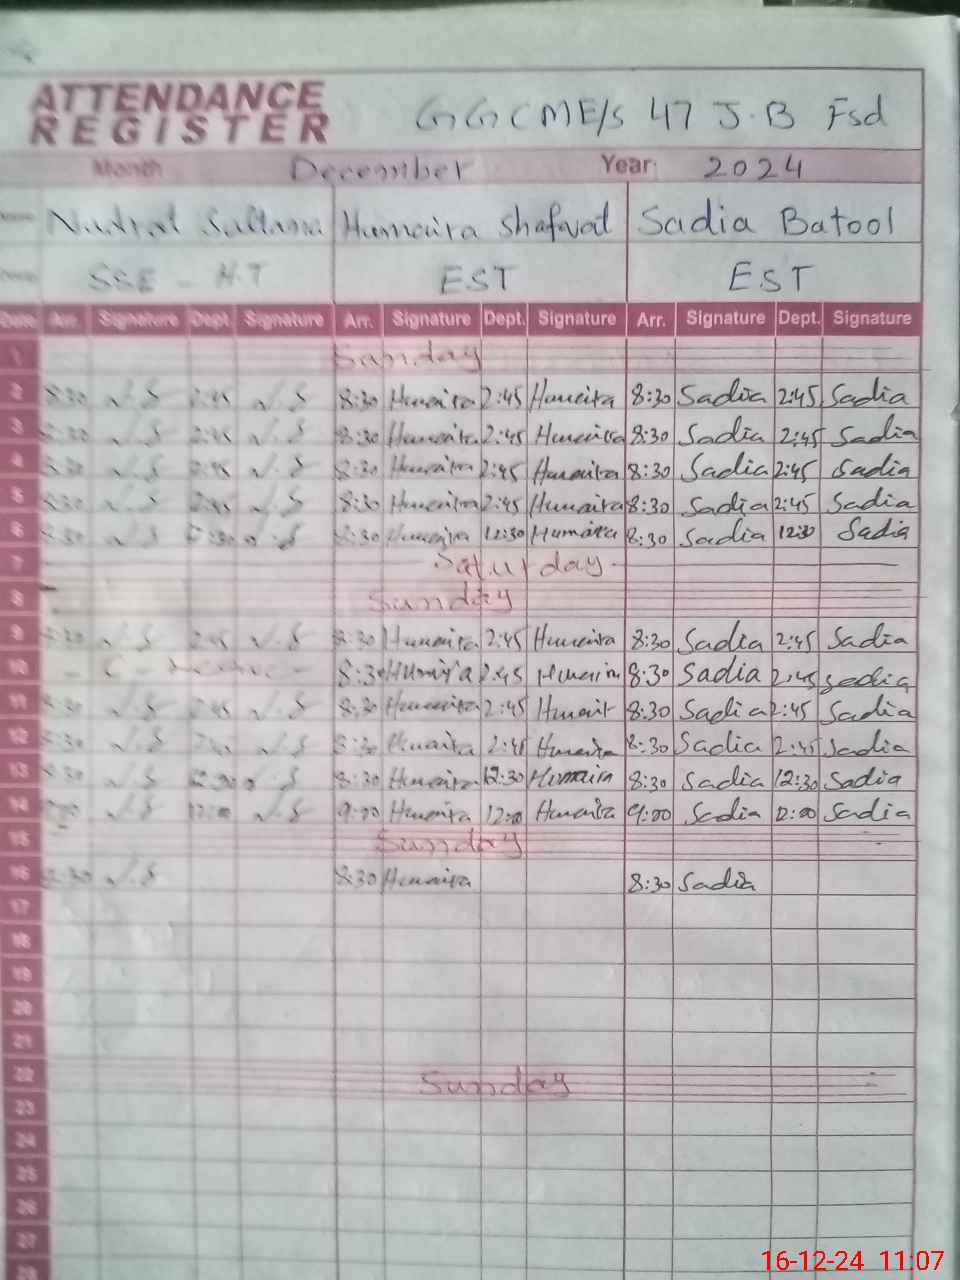 ATTENDANCE
REGISTER
GGCMES 47 J.B Fsd
Month December Year: 2024
Sultana Humaira Shafwat Sadia Batool
SSE - H.T EST EST
Date Arr. Signature Dept. Signature Arr. Signature Dept. Signature Arr. Signature Dept. Signature
1 Sunday
2 8:30 N.S 2:45 N.S 8:30 Humaira 2:45 Humaira 8:30 Sadia 2:45 Sadia
3 8:30 N.S 2:45 N.S 8:30 Humaira 2:45 Humaira 8:30 Sadia 2:45 Sadia
4 8:30 N.S 2:45 N.S 8:30 Humaira 2:45 Humaira 8:30 Sadia 2:45 Sadia
5 8:30 N.S 2:45 N.S 8:30 Humaira 2:45 Humaira 8:30 Sadia 2:45 Sadia
6 8:30 N.S N.S 8:30 Humaira 12:30 Humaira 8:30 Sadia 12:30 Sadia
7 Saturday
8 Sunday
9 8:30 N.S 2:45 N.S 8:30 Humaira 2:45 Humaira 8:30 Sadia 2:45 Sadia
10 8:30 Humaira 2:45 8:30 Sadia 2:45 Sadia
11 8:30 N.S 2:45 N.S 8:30 Humaira 2:45 8:30 Sadia 2:45 Sadia
12 8:30 N.S 2:45 N.S 8:30 Humaira 2:45 Humaira 8:30 Sadia 2:45 Sadia
13 8:30 N.S 12:30 N.S 8:30 Humaira 12:30 Humaira 8:30 Sadia 12:30 Sadia
14 9:00 N.S 12:00 N.S 9:00 Humaira 12:00 Humaira 9:00 Sadia 12:00 Sadia
15 Sunday
16 8:30 N.S 8:30 Humaira 8:30 Sadia
17
18
19
20
21
22 Sunday
23
24
25
26
27
28
16-12-24 11:07